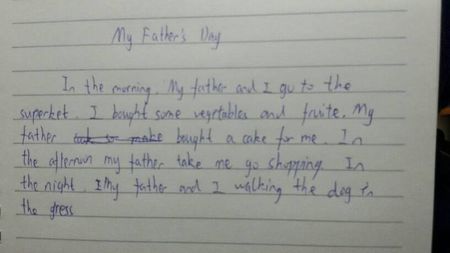 My Father's Day
In the morning. My father and I go to the
superket. I bought some vegrtables and fruite. My
father took to make bought a cake for me. In
the afternun my father take me go shopping. In
the night. I My father and I walking the dog in
the gress